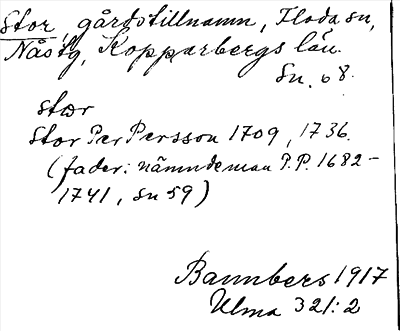 Stor, gårdstillnamn, Floda sn,
Nåstg, Kopparbergs län.
Sn. 68.
stor
Stor Per Persson 1709, 1736.
(fader: nämndeman P.P. 1682-
1741, sn 59)
Bannbers 1917
Ulma 321:2